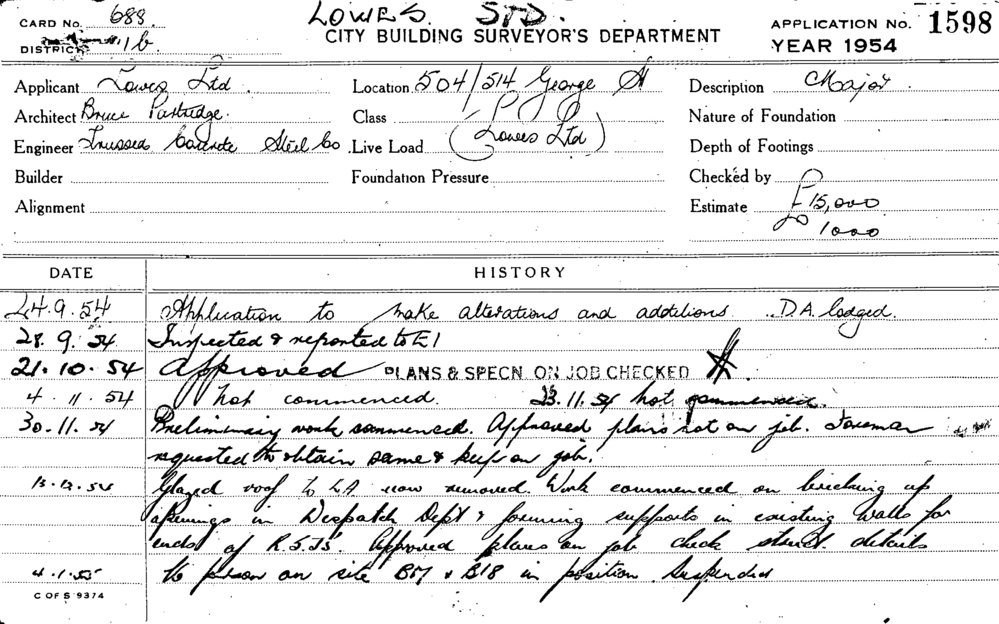 CARD No. 688. LOWES LTD. APPLICATION No. 1598
DISTRICT 1b. CITY BUILDING SURVEYOR'S DEPARTMENT YEAR 1954
Applicant Lowes Ltd. Location 504/514 George St Description Major
Architect Bruce Partridge. Class Nature of Foundation
Engineer Trussed Concrete Steel Co Live Load (Lowes Ltd) Depth of Footings
Builder Foundation Pressure Checked by
Alignment Estimate £15,000
1000
DATE HISTORY
24.9.54 Application to make alterations and additions. D.A. lodged.
28.9.54 Inspected & reported to E1
21.10.54 Approved PLANS & SPECN. ON JOB CHECKED
4.11.54 not commenced. 23.11.54 not commenced.
30.11.54 Preliminary work commenced. Approved plans not on job. Foreman
requested to obtain same & keep on job.
13.12.54 Glazed roof to L.A. now removed. Work commenced on bricking up
openings in Despatch Dept & forming supports in existing walls for
ends of R.S.J's. Approved plans on job check struct. details
4.1.55 to person on site B17 & B18 in position. Suspended
C OF S 9374